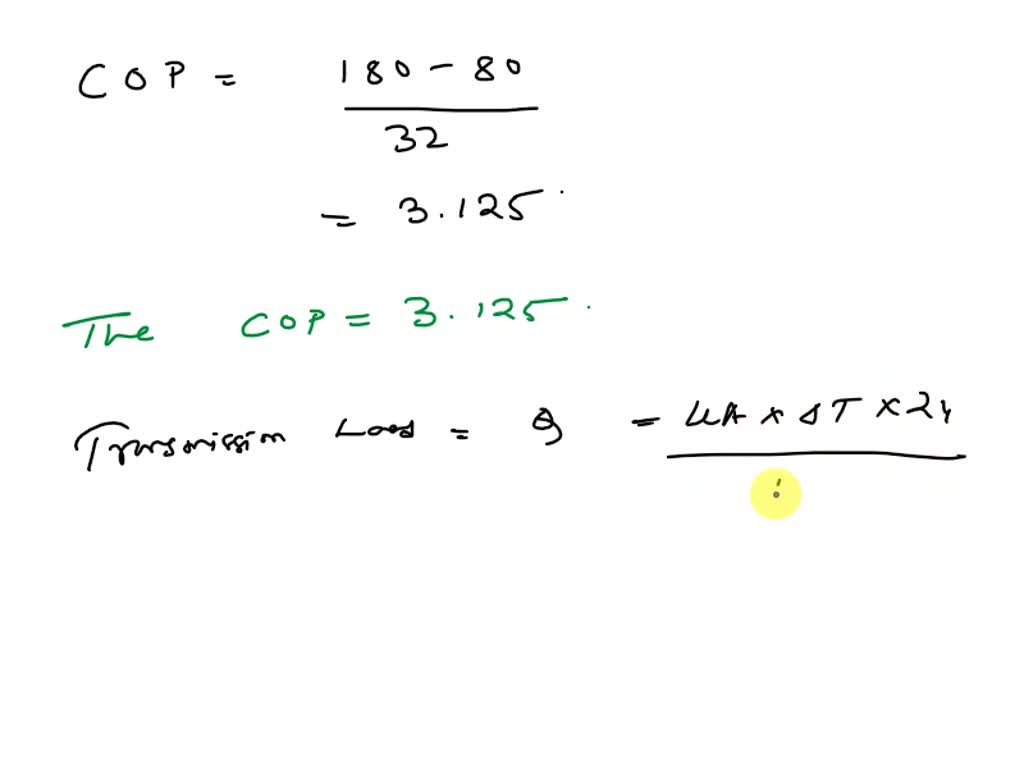 COP = 180 - 80
32
= 3.125.
The COP = 3.125.
Transmission Load = Q = UA x ΔT x 24